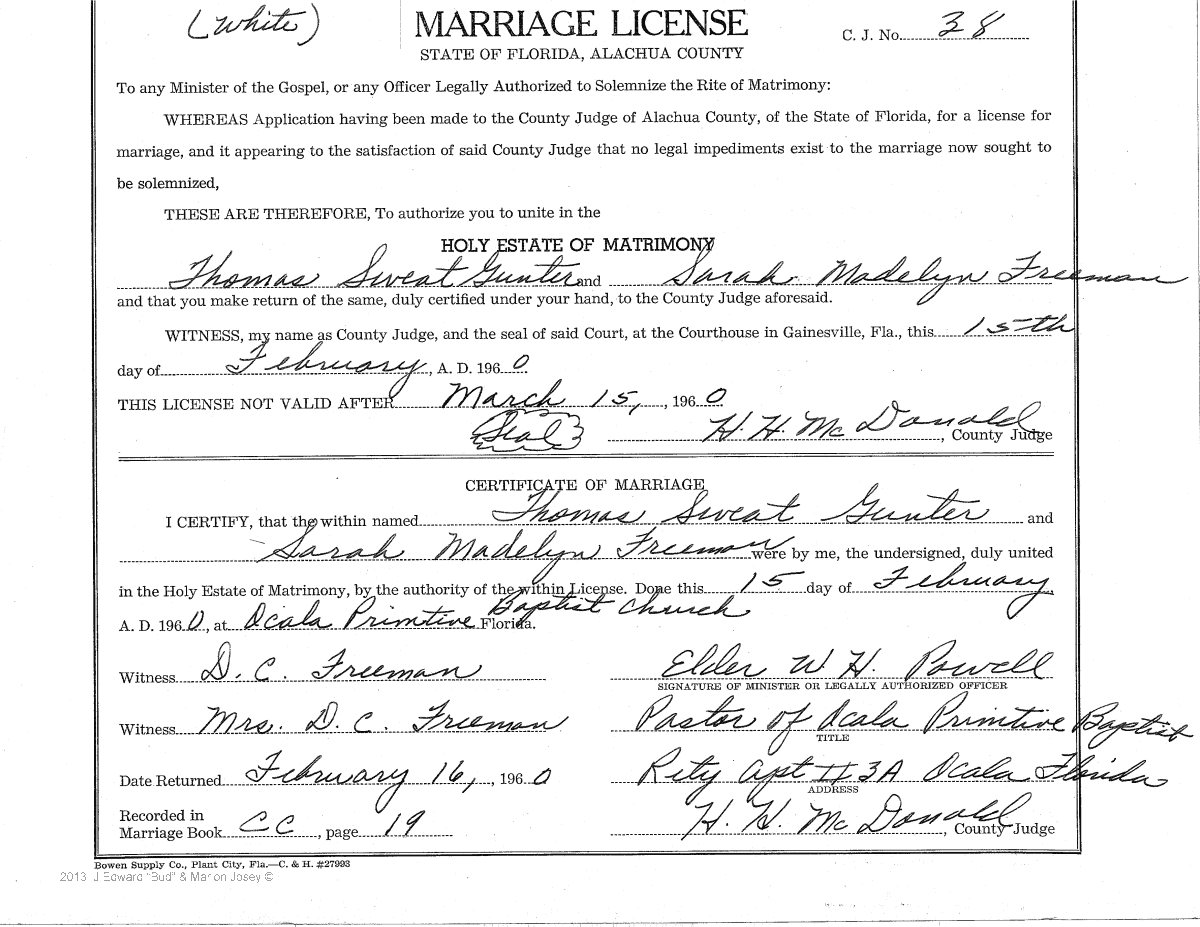 (White)
MARRIAGE LICENSE
C. J. No. 38
STATE OF FLORIDA, ALACHUA COUNTY
To any Minister of the Gospel, or any Officer Legally Authorized to Solemnize the Rite of Matrimony:
WHEREAS Application having been made to the County Judge of Alachua County, of the State of Florida, for a license for
marriage, and it appearing to the satisfaction of said County Judge that no legal impediments exist to the marriage now sought to
be solemnized,
THESE ARE THEREFORE, To authorize you to unite in the
HOLY ESTATE OF MATRIMONY
Thomas Sweat Gunter and Sarah Madelyn Freeman
and that you make return of the same, duly certified under your hand, to the County Judge aforesaid.
WITNESS, my name as County Judge, and the seal of said Court, at the Courthouse in Gainesville, Fla., this 15th
day of February, A. D. 1960
THIS LICENSE NOT VALID AFTER March 15, , 1960
Seal H. H. McDonald, County Judge
CERTIFICATE OF MARRIAGE
I CERTIFY, that the within named Thomas Sweat Gunter and
Sarah Madelyn Freeman were by me, the undersigned, duly united
in the Holy Estate of Matrimony, by the authority of the within License. Done this 15 day of February
A. D. 1960, at Ocala Primtive Baptist Church Florida.
Witness D. C. Freeman Elder W. H. Powell
SIGNATURE OF MINISTER OR LEGALLY AUTHORIZED OFFICER
Witness Mrs. D. C. Freeman Pastor of Ocala Primtive Baptist
TITLE
Date Returned February 16, , 1960 Apt 3A Ocala Florida
ADDRESS
Recorded in
Marriage Book CC, page 19 H. H. McDonald, County Judge
Bowen Supply Co., Plant City, Fla.—C. & H. #27993
2013 J Edward "Bud" & Marion Josey ©